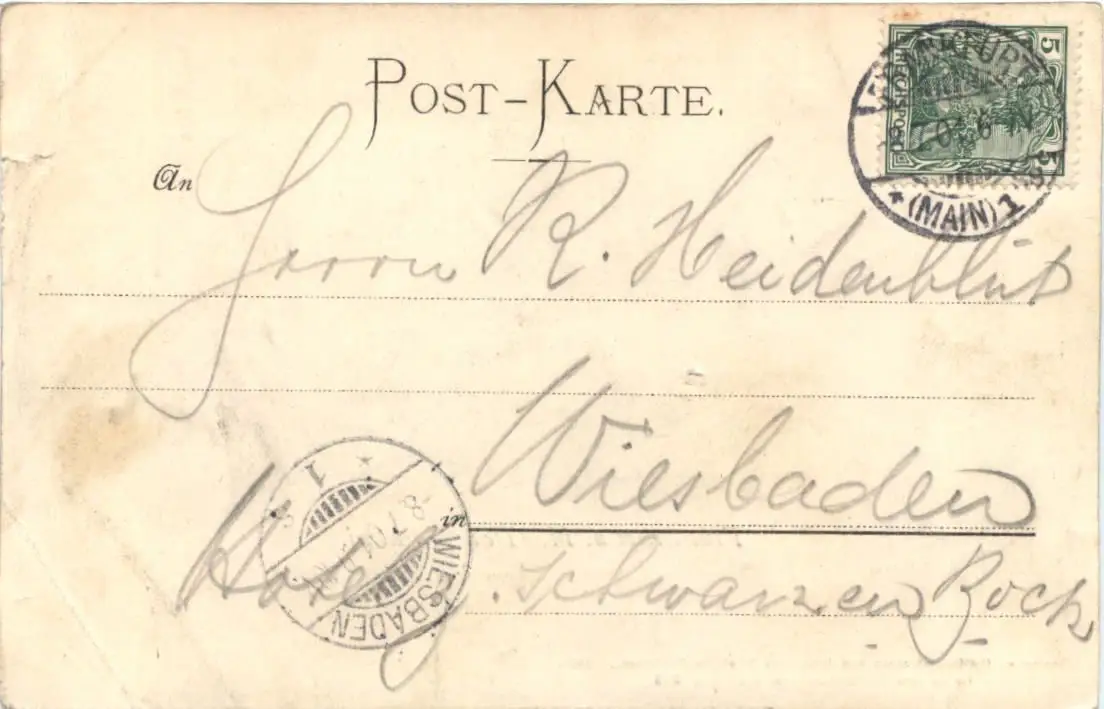 POST-KARTE.
An
Herrn R. Heidenblut
in Wiesbaden
Hotel z. schwarzen Bock
5 REICHSPOST 5
FRANKFURT
* (MAIN) 1
WIESBADEN
* 1
8.7.04